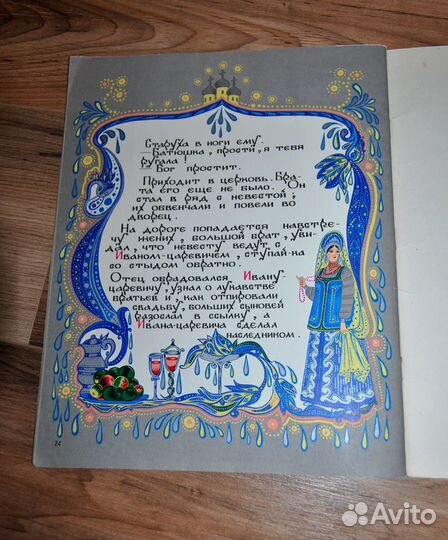 Старуха в ноги ему.
Батюшка, прости, я тебя
ругала!
Бог простит.
Приходит в церковь. Бра-
та его еще не было. Он
стал в ряд с невестой;
их обвенчали и повели во
дворец.
На дороге попадается навстре-
чу жених, большой брат, уви-
дал, что невесту ведут с
Иваном-царевичем, ступай-ка
со стыдом обратно.
Отец обрадовался Ивану-
царевичу, узнал о лукавстве
братьев и, как отпировали
свадьбу, больших сыновей
разослал в ссылку, а
Ивана-царевича сделал
наследником.
24
Avito